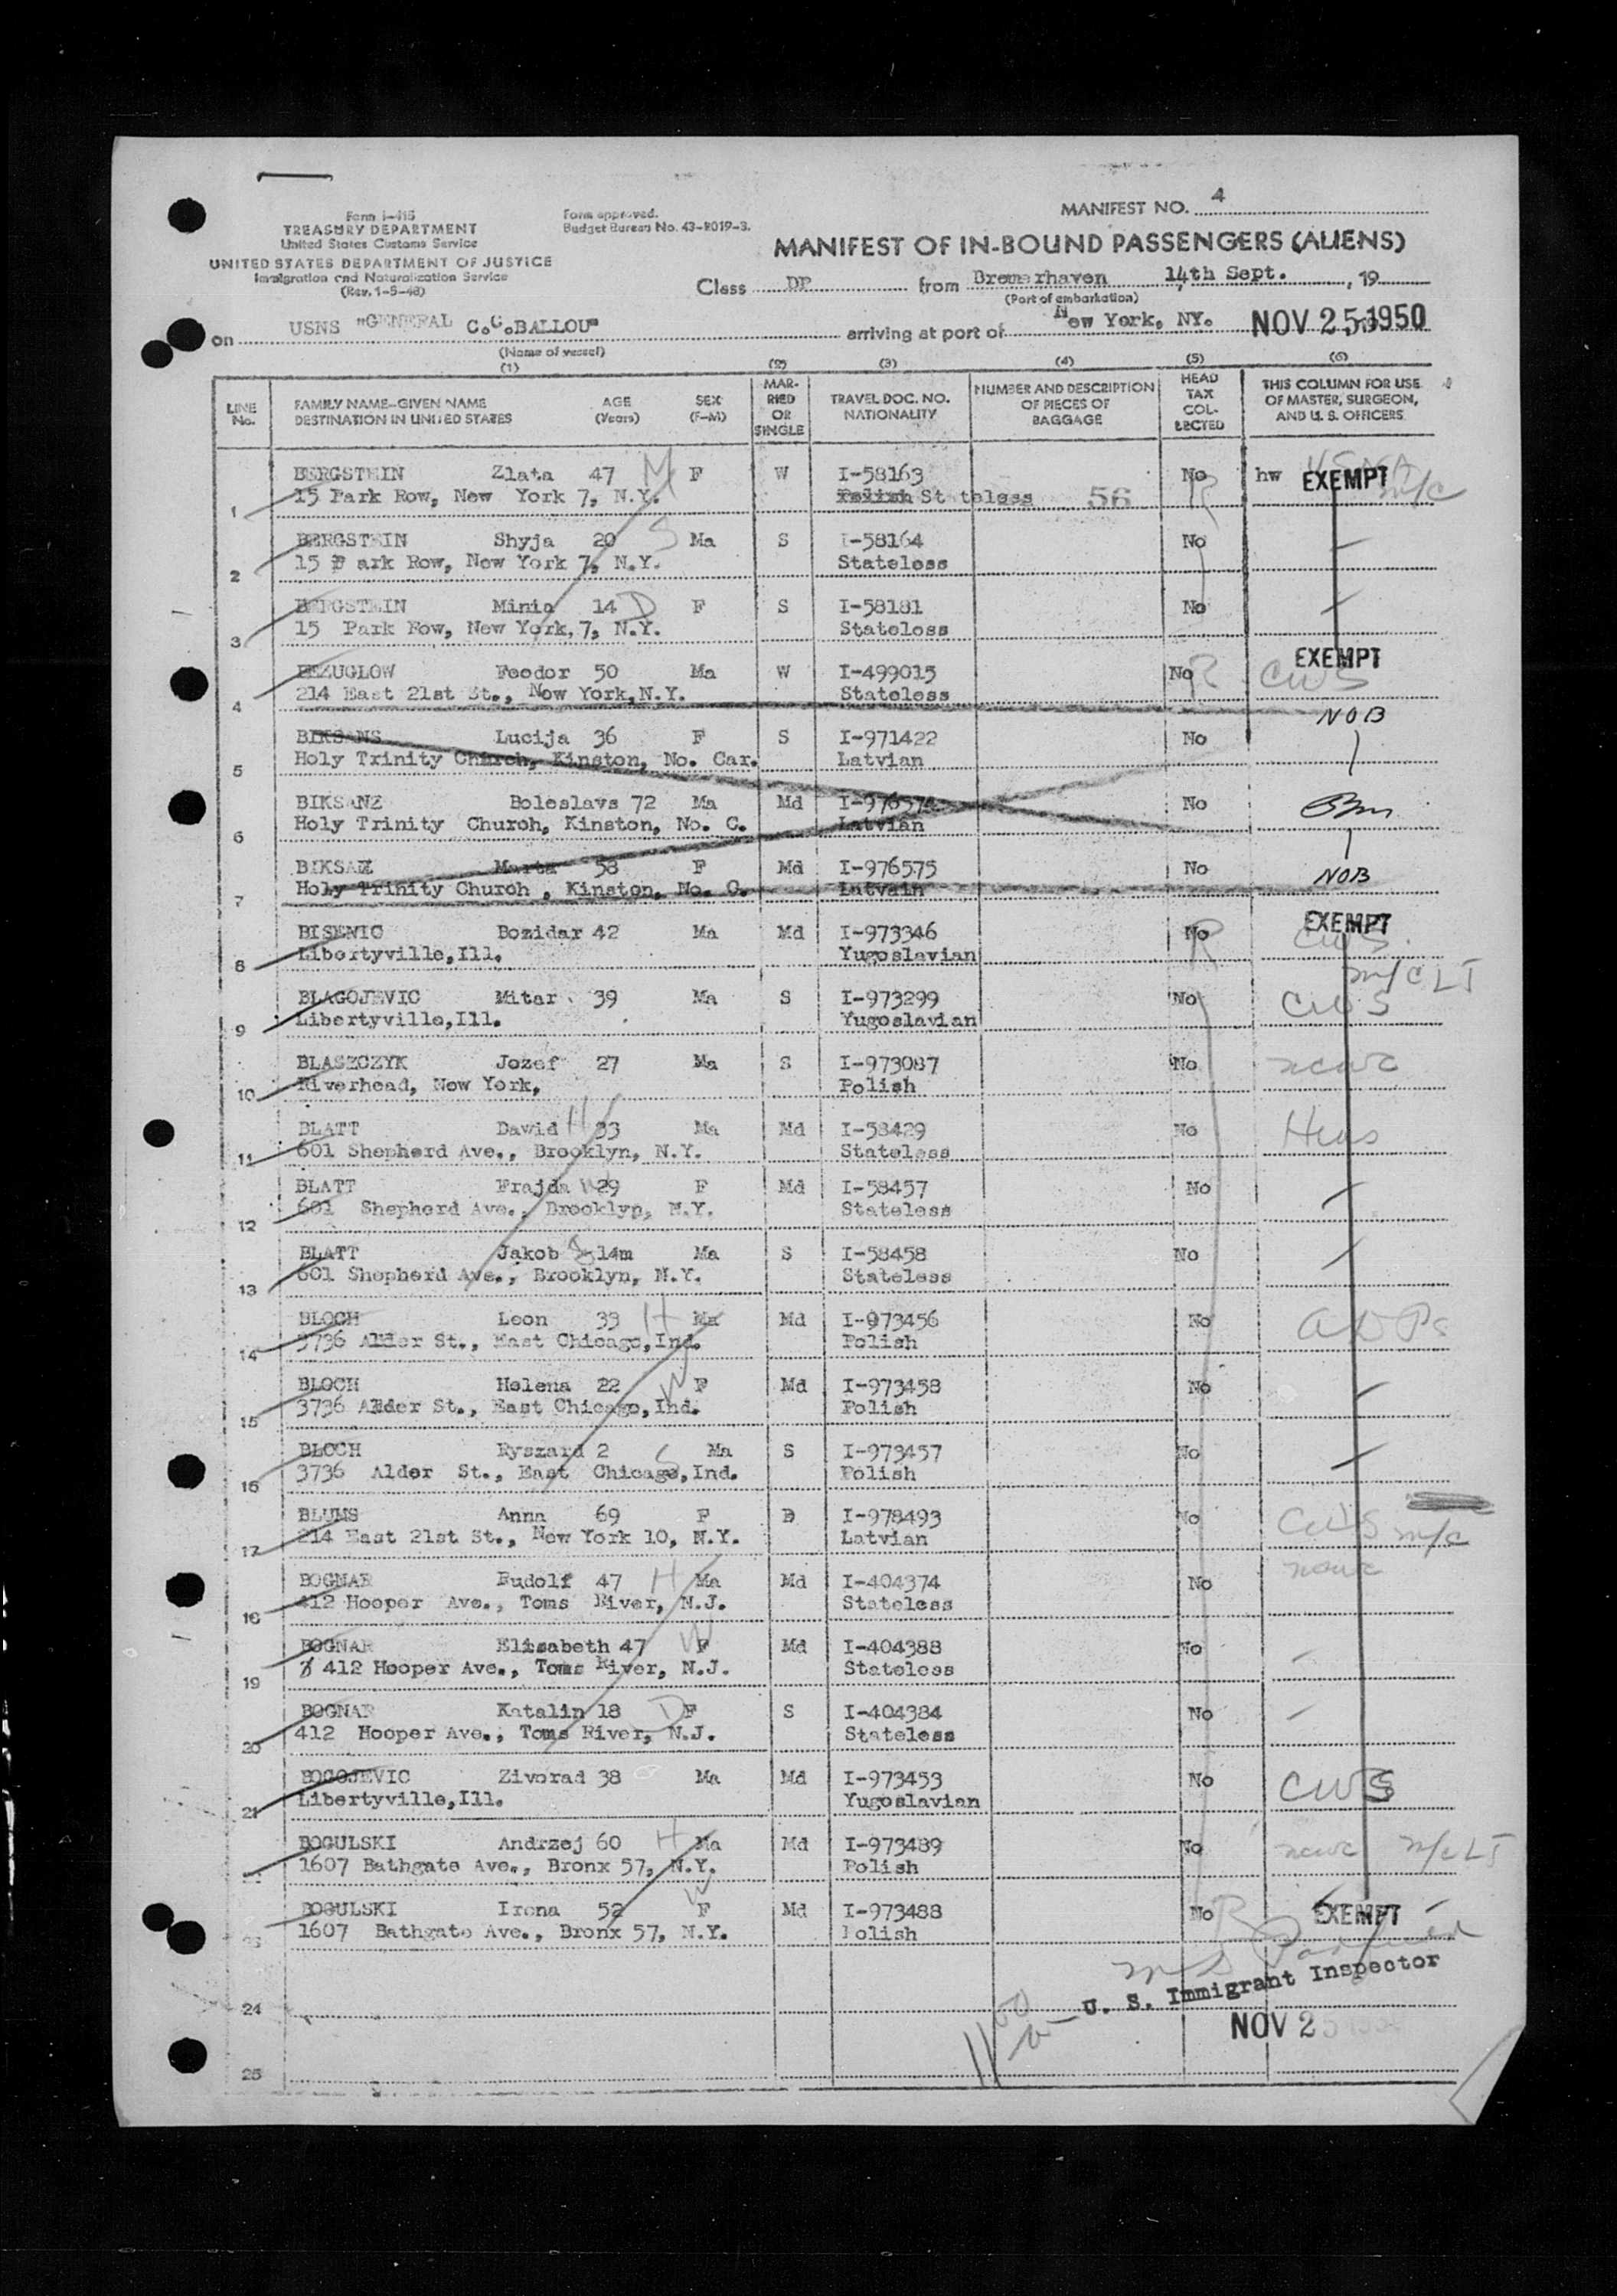 MANIFEST NO. 4
Form I-415
TREASURY DEPARTMENT
United States Customs Service
UNITED STATES DEPARTMENT OF JUSTICE
Immigration and Naturalization Service
(Rev. 1-5-48)
Form approved.
Budget Bureau No. 43-R019-3.
MANIFEST OF IN-BOUND PASSENGERS (ALIENS)
Class DP from Bremerhaven 14th Sept. , 19
(Port of embarkation)
on USNS "GENERAL C.C.BALLOU" arriving at port of New York, NY. NOV 25 1950
(Name of vessel)
(1) (2) (3) (4) (5) (6)
LINE No. FAMILY NAME-GIVEN NAME DESTINATION IN UNITED STATES AGE (Years) SEX (F-M) MAR-RIED OR SINGLE TRAVEL DOC. NO. NATIONALITY NUMBER AND DESCRIPTION OF PIECES OF BAGGAGE HEAD TAX COL-LECTED THIS COLUMN FOR USE OF MASTER, SURGEON, AND U. S. OFFICERS
BERGSTEIN Zlata 47 M F W I-58163 No R hw EXEMPT m/c
1 15 Park Row, New York 7, N.Y. Polish Stateless 56
BERGSTEIN Shyja 20 S Ma S I-58164 No
2 15 P ark Row, New York 7, N.Y. Stateless
BERGSTEIN Minia 14 D F S I-58181 No
3 15 Park Row, New York, 7, N.Y. Stateless
BEZUGLOW Feodor 50 Ma W I-499015 No R EXEMPT CWS
4 214 East 21st St., New York,N.Y. Stateless
BIKSANS Lucija 36 F S I-971422 No NOB
5 Holy Trinity Church, Kinston, No. Car. Latvian
BIKSANZ Boleslavs 72 Ma Md I-976574 No
6 Holy Trinity Church, Kinston, No. C. Latvian
BIKSAZ Marta 58 F Md I-976575 No NOB
7 Holy Trinity Church , Kinston, No. C. Latvain
BISENIC Bozidar 42 Ma Md I-973346 No R EXEMPT CWS
8 Libertyville,Ill. Yugoslavian m/c LJ
BLAGOJEVIC Mitar 39 Ma S I-973299 No CWS
9 Libertyville,Ill. Yugoslavian
BLASZCZYK Jozef 27 Ma S I-973087 No ncwc
10 Riverhead, New York, Polish
BLATT Dawid H 33 Ma Md I-58429 No Hias
11 601 Shepherd Ave., Brooklyn, N.Y. Stateless
BLATT Frajda W 29 F Md I-58457 No
12 601 Shepherd Ave., Brooklyn, N.Y. Stateless
BLATT Jakob S 14m Ma S I-58458 No
13 601 Shepherd Ave., Brooklyn, N.Y. Stateless
BLOCH Leon 39 H Ma Md I-973456 No
14 3736 Alder St., East Chicago,Ind. Polish
BLOCH Helena 22 W F Md I-973458 No
15 3736 Alder St., East Chicago,Ind. Polish
BLOCH Ryszard 2 S Ma S I-973457 No
16 3736 Alder St., East Chicago,Ind. Polish
BLUMS Anna 69 F D I-978493 No CWS m/c
17 214 East 21st St., New York 10, N.Y. Latvian
BOGNAR Rudolf 47 H Ma Md I-404374 No ncwc
18 412 Hooper Ave., Toms River, N.J. Stateless
BOGNAR Elisabeth 47 W F Md I-404388 No
19 412 Hooper Ave., Toms River, N.J. Stateless
BOGNAR Katalin 18 D F S I-404384 No
20 412 Hooper Ave., Toms River, N.J. Stateless
BOGOJEVIC Zivorad 38 Ma Md I-973453 No CWS
21 Libertyville,Ill. Yugoslavian
BOGULSKI Andrzej 60 H Ma Md I-973489 No ncwc m/c LJ
1607 Bathgate Ave., Bronx 57, N.Y. Polish
BOGULSKI Irena 52 W F Md I-973488 No R EXEMPT
23 1607 Bathgate Ave., Bronx 57, N.Y. Polish
U. S. Immigrant Inspector
24
NOV 25
25